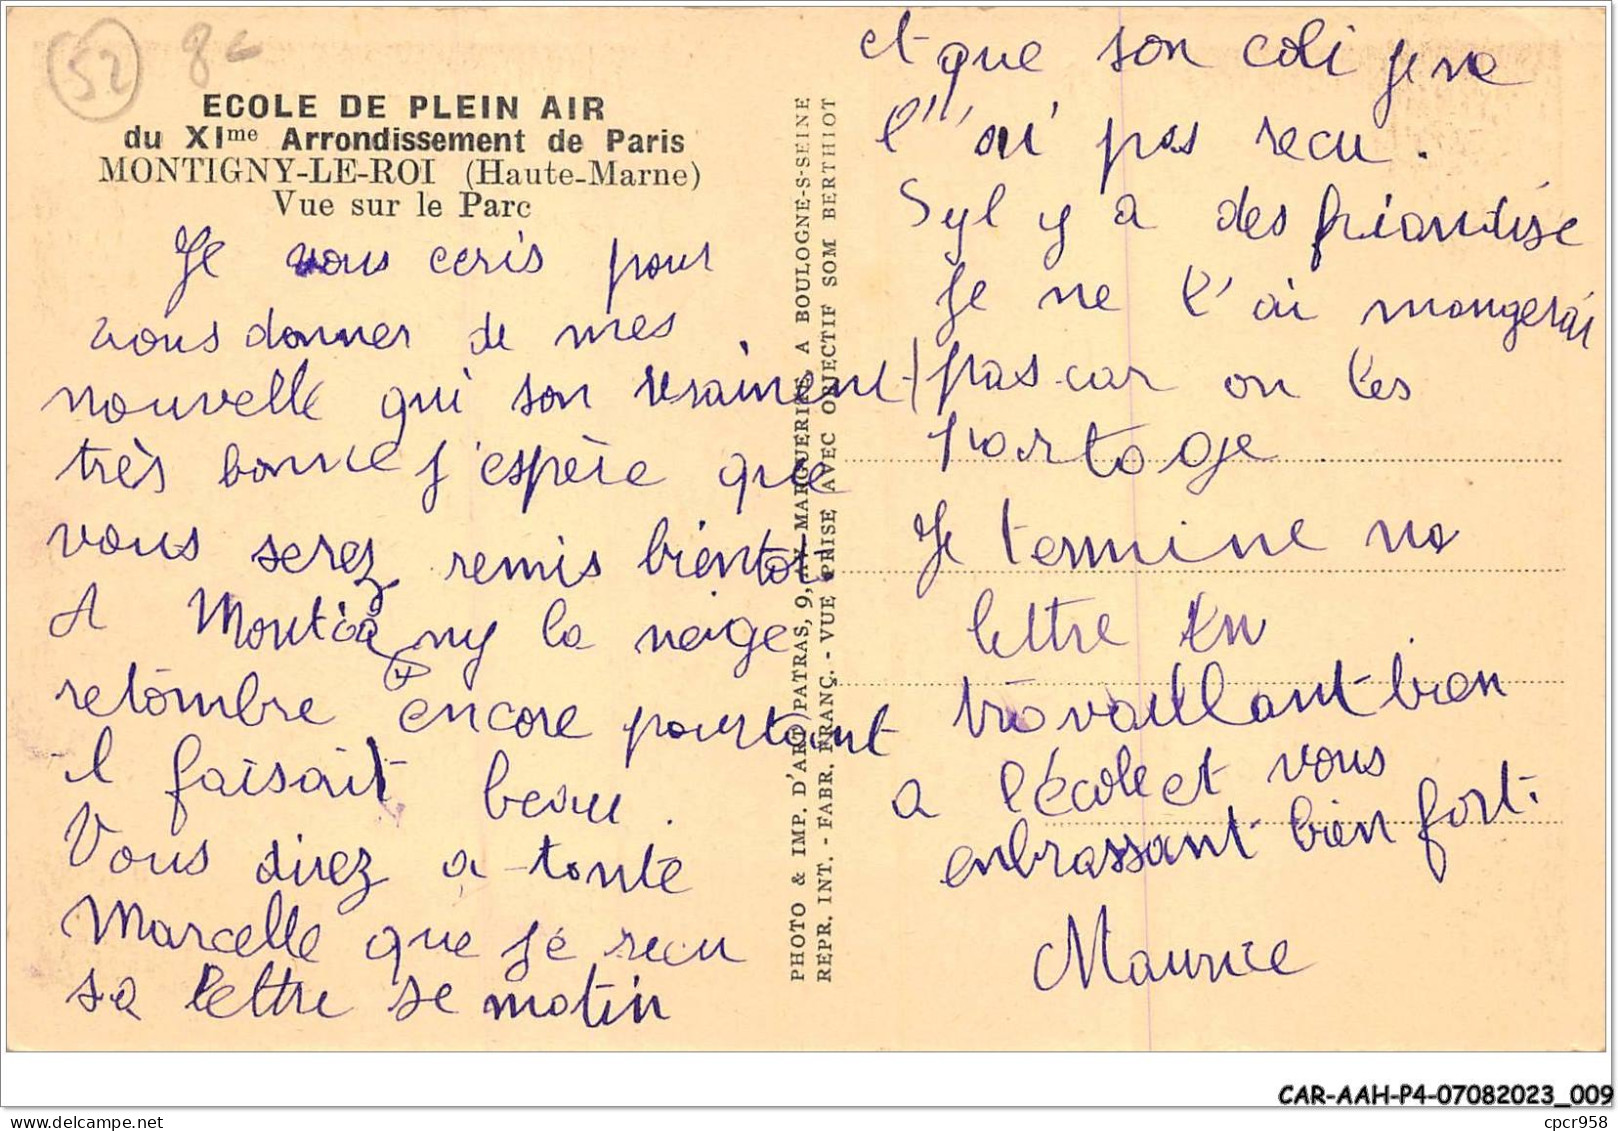 52 8c
ECOLE DE PLEIN AIR
du XIme Arrondissement de Paris
MONTIGNY-LE-ROI (Haute-Marne)
Vue sur le Parc
Je vous ceris pour
vous donner de mes
nouvelle qui son
très bonne j'espère que
vous serez remis bientot
A Montigny la neige
retombre encore pourtant
il faisait beau.
Vous direz a tonte
Marcelle que je recu
sa lettre se matin
PHOTO & IMP. D'ART PATRAS, 9, AV. MARGUERITE, A BOULOGNE-S-SEINE
REPR. INT. - FABR. FRANÇ. - VUE PRISE AVEC OBJECTIF SOM BERTHIOT
et que son coli je ne
l'ai pas recu.
Syl y a des friantise
Je ne l'ai mangerai
pas car on les
partage
Je termine ma
lettre en
travaillant bien
a l'école et vous
enbrassant bien fort.
Maurice
CAR-AAH-P4-07082023_009
cpcr958